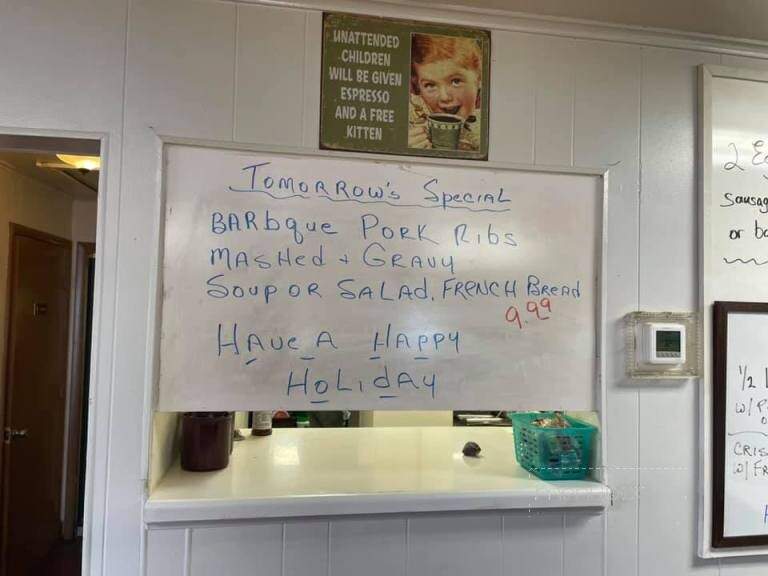 UNATTENDED
CHILDREN
WILL BE GIVEN
ESPRESSO
AND A FREE
KITTEN
TOMORROW's SPECIAL
BARbque PORK Ribs
MASHed + GRAVY
SOUP OR SALAd. FRENCH BREAd
9.99
HAVE A HAPPY
HOLidAy
2
Sausag
or
1/2
w/
CRIS
w/ FR